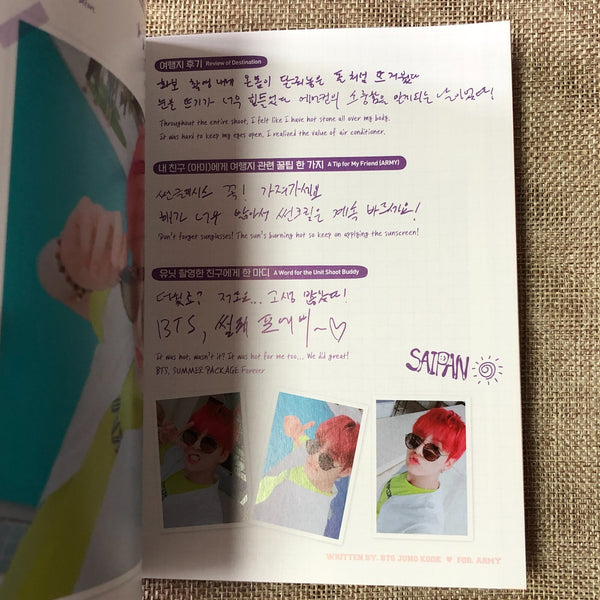 여행지 후기 Review of Destination
화보 촬영 내내 온몸이 달궈놓은 돌처럼 뜨거웠다
눈을 뜨기가 너무 힘들었다 에어컨의 소중함을 알게되는 날이었다!
Throughout the entire shoot, I felt like I have hot stone all over my body.
It was hard to keep my eyes open. I realized the value of air conditioner.
내 친구 (아미)에게 여행지 관련 꿀팁 한 가지 A Tip for My Friend (ARMY)
썬글래시스 꼭! 가져가세요
해가 너무 많아서 썬크림은 계속 바르세요!
Don't forget sunglasses! The sun's burning hot so keep on applying the sunscreen!
유닛 촬영한 친구에게 한 마디 A Word for the Unit Shoot Buddy
더웠죠? 저도요... 고생 많았다!
BTS, 썸패 포에버~♡
It was hot, wasn't it? It was hot for me too... We did great!
BTS, SUMMER PACKAGE Forever
SAIPAN
WRITTEN BY. BTS JUNG KOOK ♥ FOR. ARMY